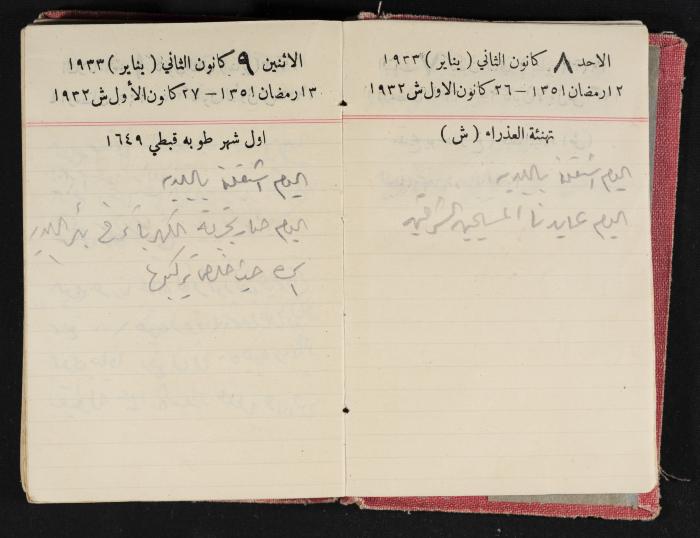 الاحد ٨ كانون الثاني ( يناير ) ١٩٣٣
١٢ رمضان ١٣٥١ – ٢٦ كانون الاول ش ١٩٣٢
تهنئة العذراء ( ش )
اليوم اشتغلنا بالبلديه
اليوم عايدنا المسيحيه الشرقيه
الاثنين ٩ كانون الثاني ( يناير ) ١٩٣٣
١٣ رمضان ١٣٥١ – ٢٧ كانون الأول ش ١٩٣٢
اول شهر طوبه قبطي ١٦٤٩
اليوم اشتغلنا بالبلديه
اليوم صار تجربة الكهرباء في بئر
حيث خلص تركيبها